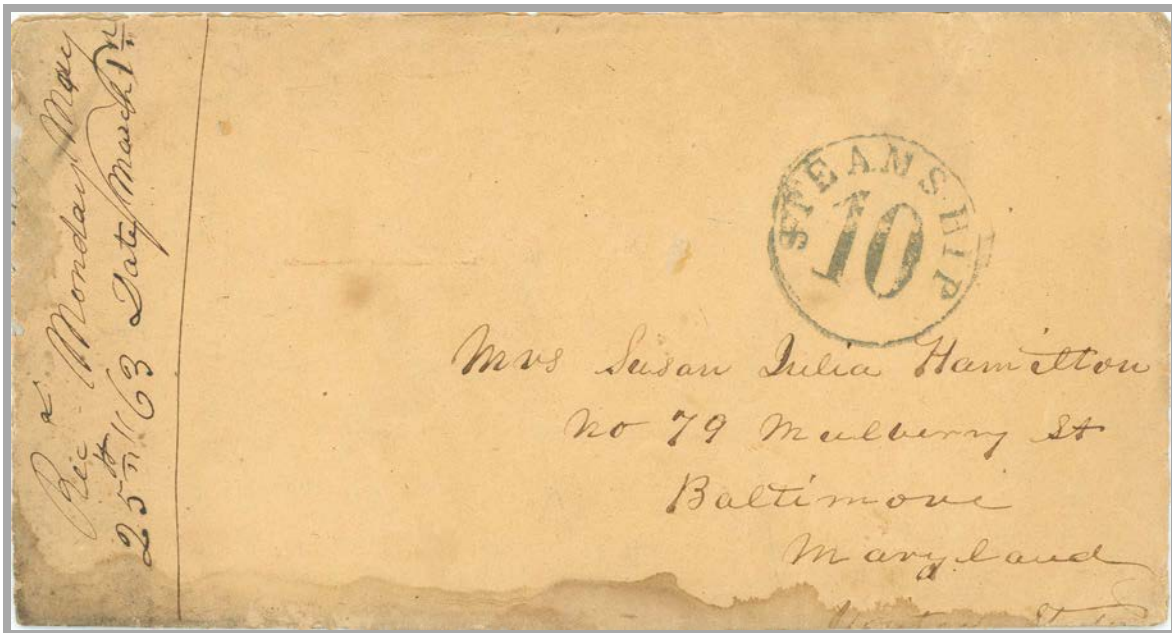 Recd Monday May
25th "63 Date/March 1st
STEAMSHIP
10
Mrs Susan Julia Hamilton
No 79 Mulberry St
Baltimore
Maryland
United